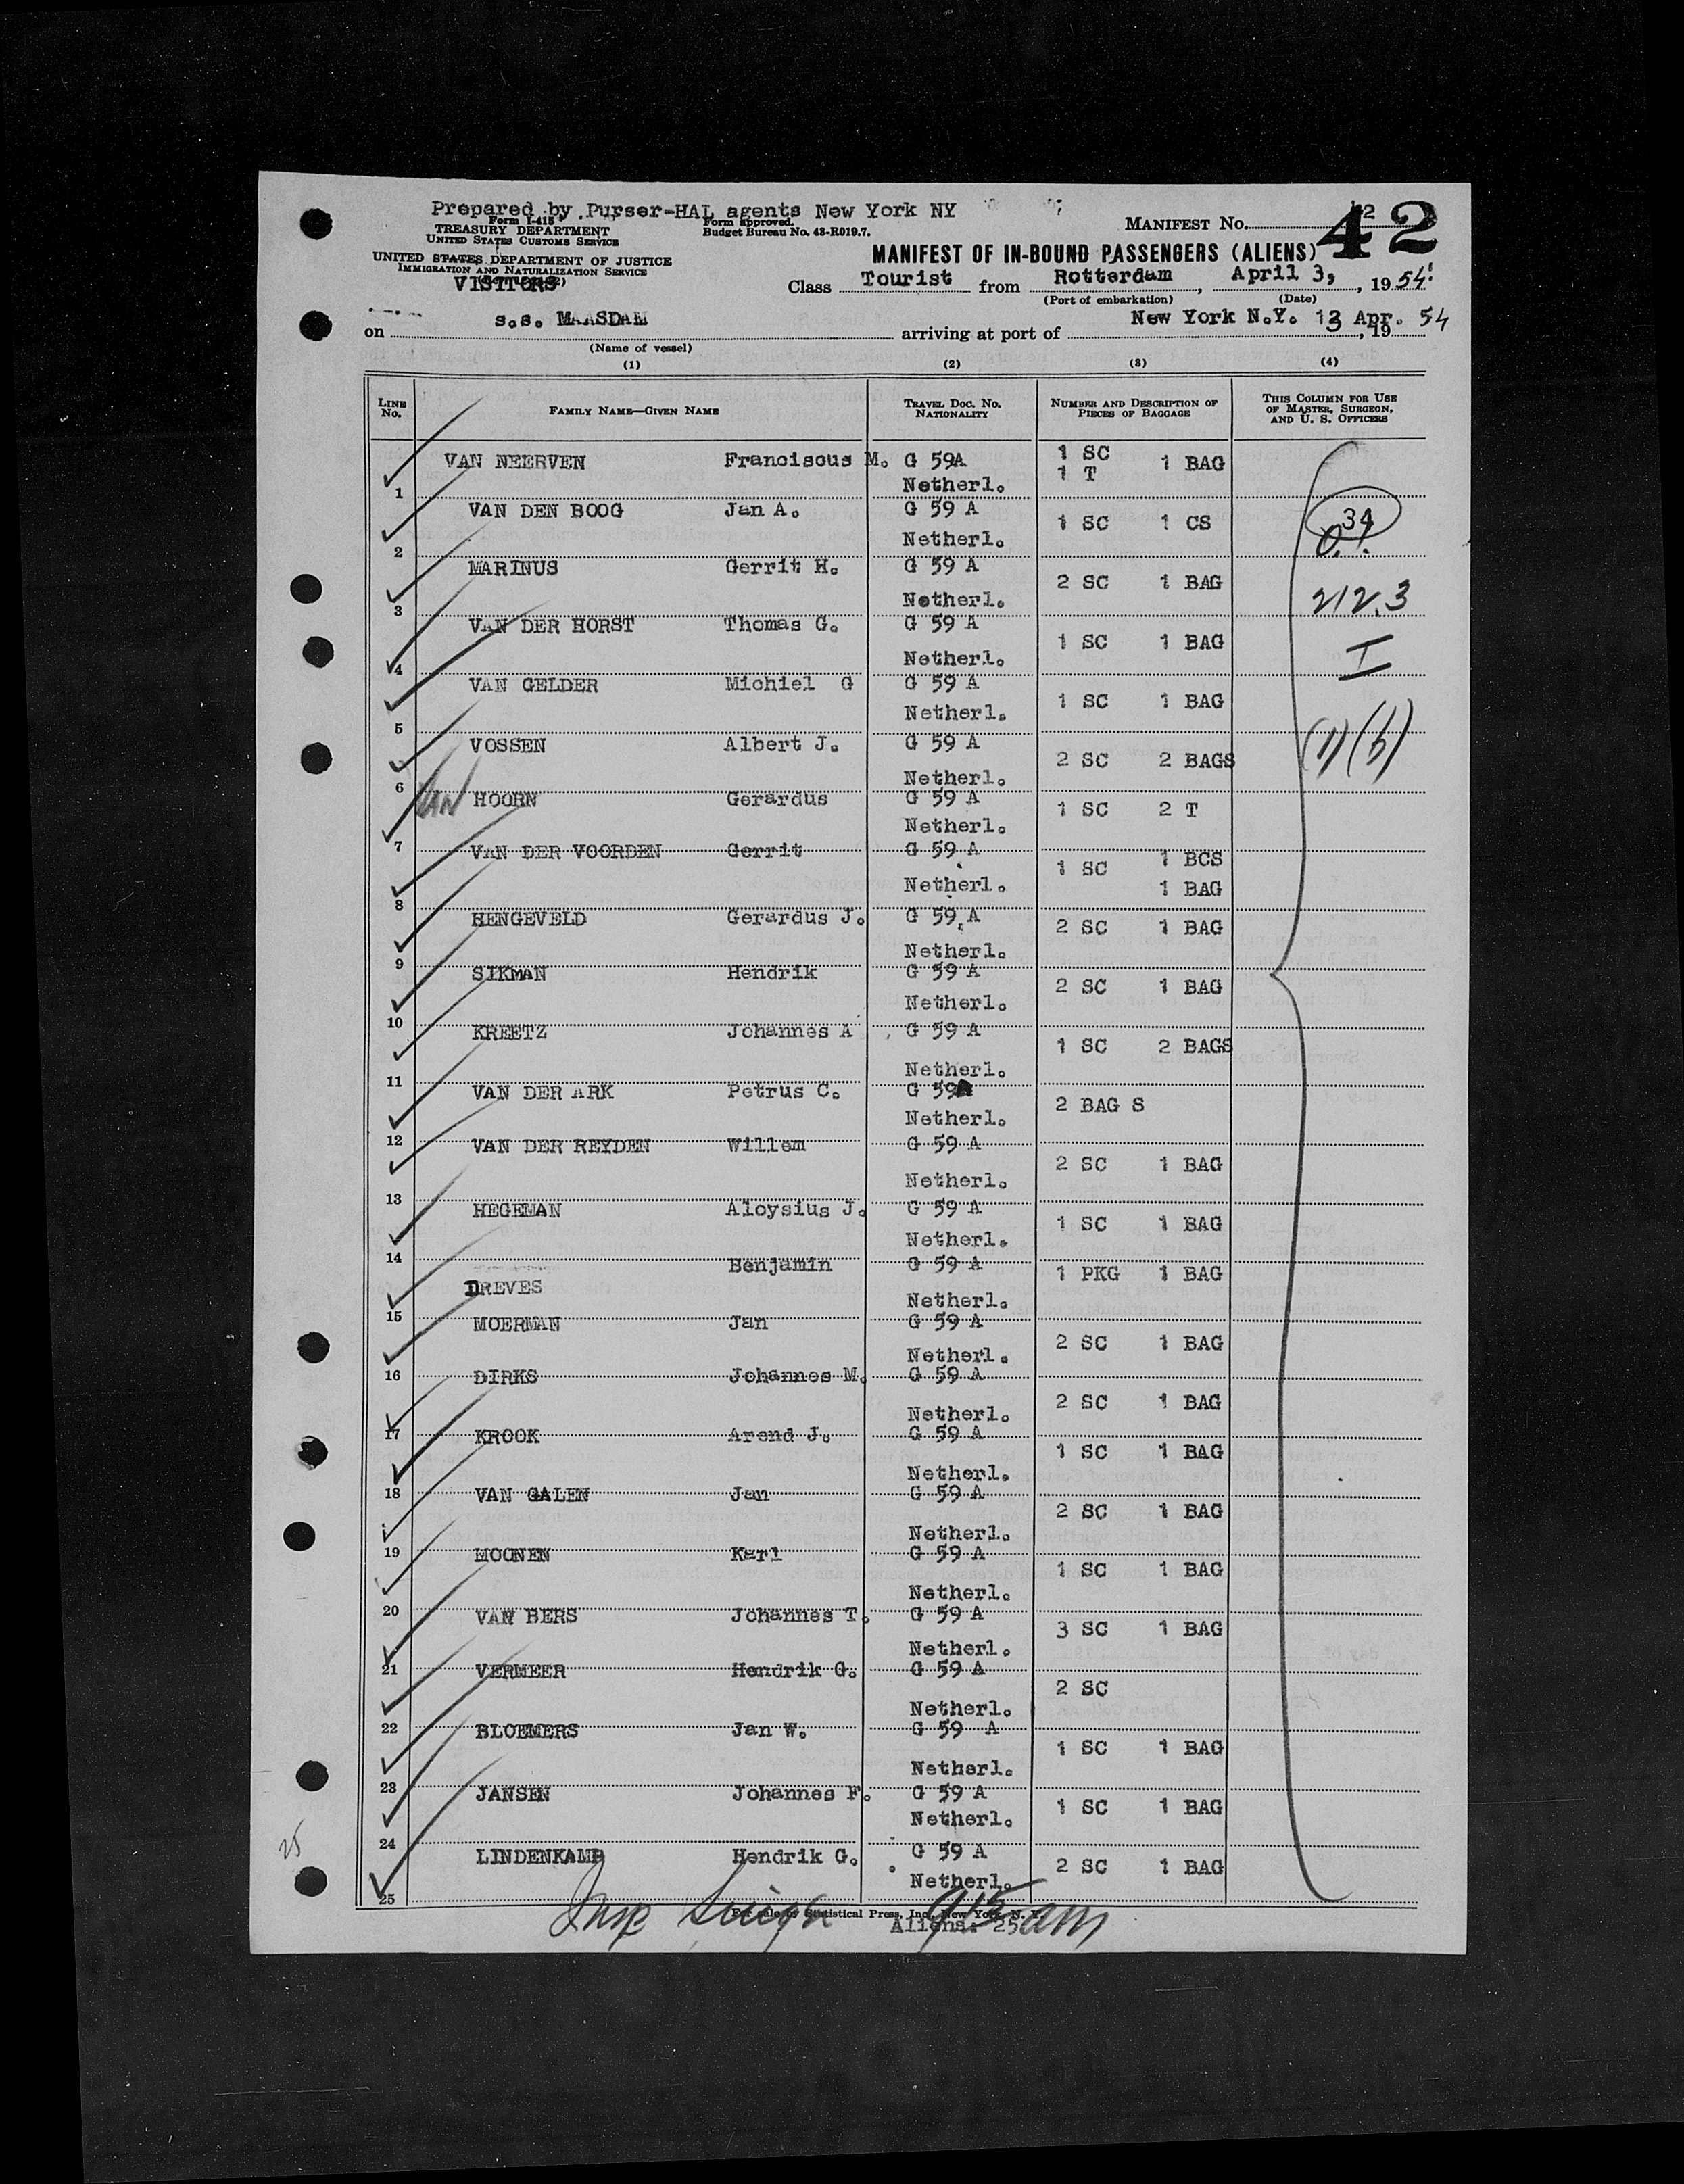 Prepared by Purser-HAL agents New York NY
Form I-415
TREASURY DEPARTMENT
UNITED STATES CUSTOMS SERVICE
Form approved.
Budget Bureau No. 43-R019.7.
MANIFEST No. 42
UNITED STATES DEPARTMENT OF JUSTICE
IMMIGRATION AND NATURALIZATION SERVICE
VISITORS
MANIFEST OF IN-BOUND PASSENGERS (ALIENS)
Class Tourist from Rotterdam, April 3, 1954
(Port of embarkation) (Date)
on s.s. MAASDAM arriving at port of New York N.Y. 13 Apr., 19 54
(Name of vessel)
(1) (2) (3) (4)
LINE No. FAMILY NAME—GIVEN NAME TRAVEL DOC. No. NATIONALITY NUMBER AND DESCRIPTION OF PIECES OF BAGGAGE THIS COLUMN FOR USE OF MASTER, SURGEON, AND U. S. OFFICERS
1 VAN NEERVEN Franciscus M. G 59A Netherl. 1 SC 1 T 1 BAG
2 VAN DEN BOOG Jan A. G 59 A Netherl. 1 SC 1 CS 34
3 MARINUS Gerrit H. G 59 A Netherl. 2 SC 1 BAG 212.3
4 VAN DER HORST Thomas G. G 59 A Netherl. 1 SC 1 BAG I
5 VAN GELDER Michiel G G 59 A Netherl. 1 SC 1 BAG (1)(b)
6 VOSSEN Albert J. G 59 A Netherl. 2 SC 2 BAGS
7 VAN HOORN Gerardus G 59 A Netherl. 1 SC 2 T
8 VAN DER VOORDEN Gerrit G 59 A Netherl. 1 SC 1 BCS 1 BAG
9 HENGEVELD Gerardus J. G 59 A Netherl. 2 SC 1 BAG
10 SIKMAN Hendrik G 59 A Netherl. 2 SC 1 BAG
11 KREETZ Johannes A G 59 A Netherl. 1 SC 2 BAGS
12 VAN DER ARK Petrus C. G 59A Netherl. 2 BAG S
13 VAN DER REYDEN Willem G 59 A Netherl. 2 SC 1 BAG
14 HEGEMAN Aloysius J. G 59 A Netherl. 1 SC 1 BAG
15 DREVES Benjamin G 59 A Netherl. 1 PKG 1 BAG
16 MOERMAN Jan G 59 A Netherl. 2 SC 1 BAG
17 DIRKS Johannes M. G 59 A Netherl. 2 SC 1 BAG
18 KROOK Arend J. G 59 A Netherl. 1 SC 1 BAG
19 VAN GALEN Jan G 59 A Netherl. 2 SC 1 BAG
20 MOONEN Karl G 59 A Netherl. 1 SC 1 BAG
21 VAN BERS Johannes T. G 59 A Netherl. 3 SC 1 BAG
22 VERMEER Hendrik G. G 59 A Netherl. 2 SC
23 BLOEMERS Jan W. G 59 A Netherl. 1 SC 1 BAG
24 JANSEN Johannes F. G 59 A Netherl. 1 SC 1 BAG
25 LINDENKAMP Hendrik G. G 59 A Netherl. 2 SC 1 BAG
25
For sale by Statistical Press, Inc., New York, N. Y.
Aliens: 25
915 am